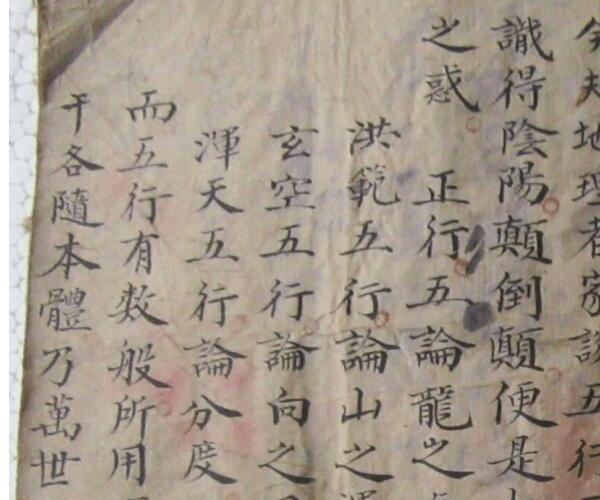 夫地理者家談五行
識得陰陽顛倒顛便是
之惑 正行五論龍之
洪範五行論山之
玄空五行論向之
渾天五行論分度
而五行有数般所用
干各隨本體乃萬世